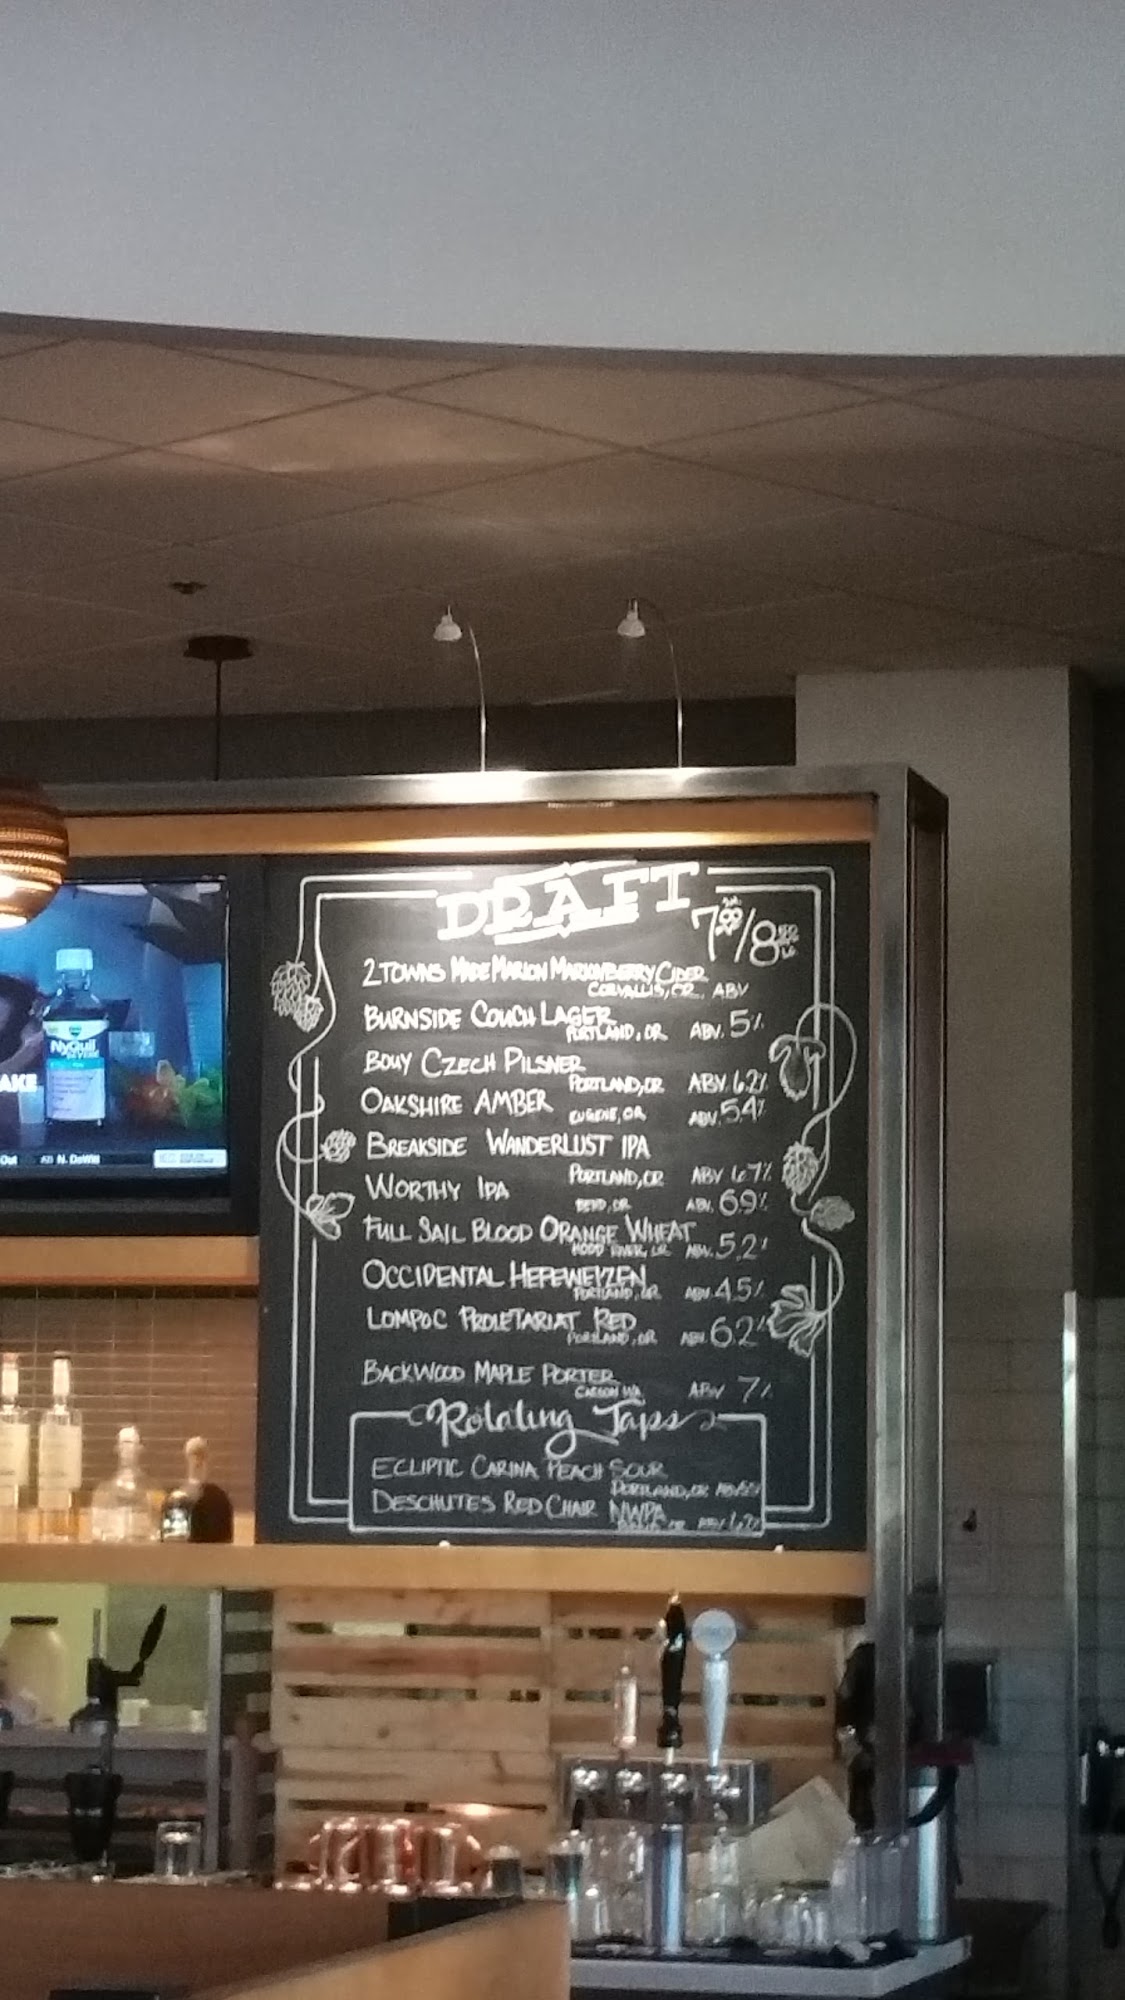 DRAFT
7.00/8
2 TOWNS MADE MARION MARIONBERRY CIDER
CORVALLIS, OR ABV
BURNSIDE COUCH LAGER
PORTLAND, OR ABV. 5%
BOUY CZECH PILSNER
PORTLAND, OR ABV 6.2%
OAKSHIRE AMBER EUGENE, OR ABV. 5.4%
BREAKSIDE WANDERLUST IPA
PORTLAND, OR ABV 6.7%
WORTHY IPA BEND, OR ABV. 6.9%
FULL SAIL BLOOD ORANGE WHEAT
HOOD RIVER, OR ABV. 5.2%
OCCIDENTAL HEFEWEIZEN
PORTLAND, OR ABV 4.5%
LOMPOC PROLETARIAT RED
PORTLAND, OR ABV. 6.2%
BACKWOOD MAPLE PORTER
CARSON WA ABV 7%
Rotating Taps
ECLIPTIC CARINA PEACH SOUR
PORTLAND, OR ABV
DESCHUTES RED CHAIR NWPA
ABV
NyQuil
SEVERE
AKE
Out N. DeWitt